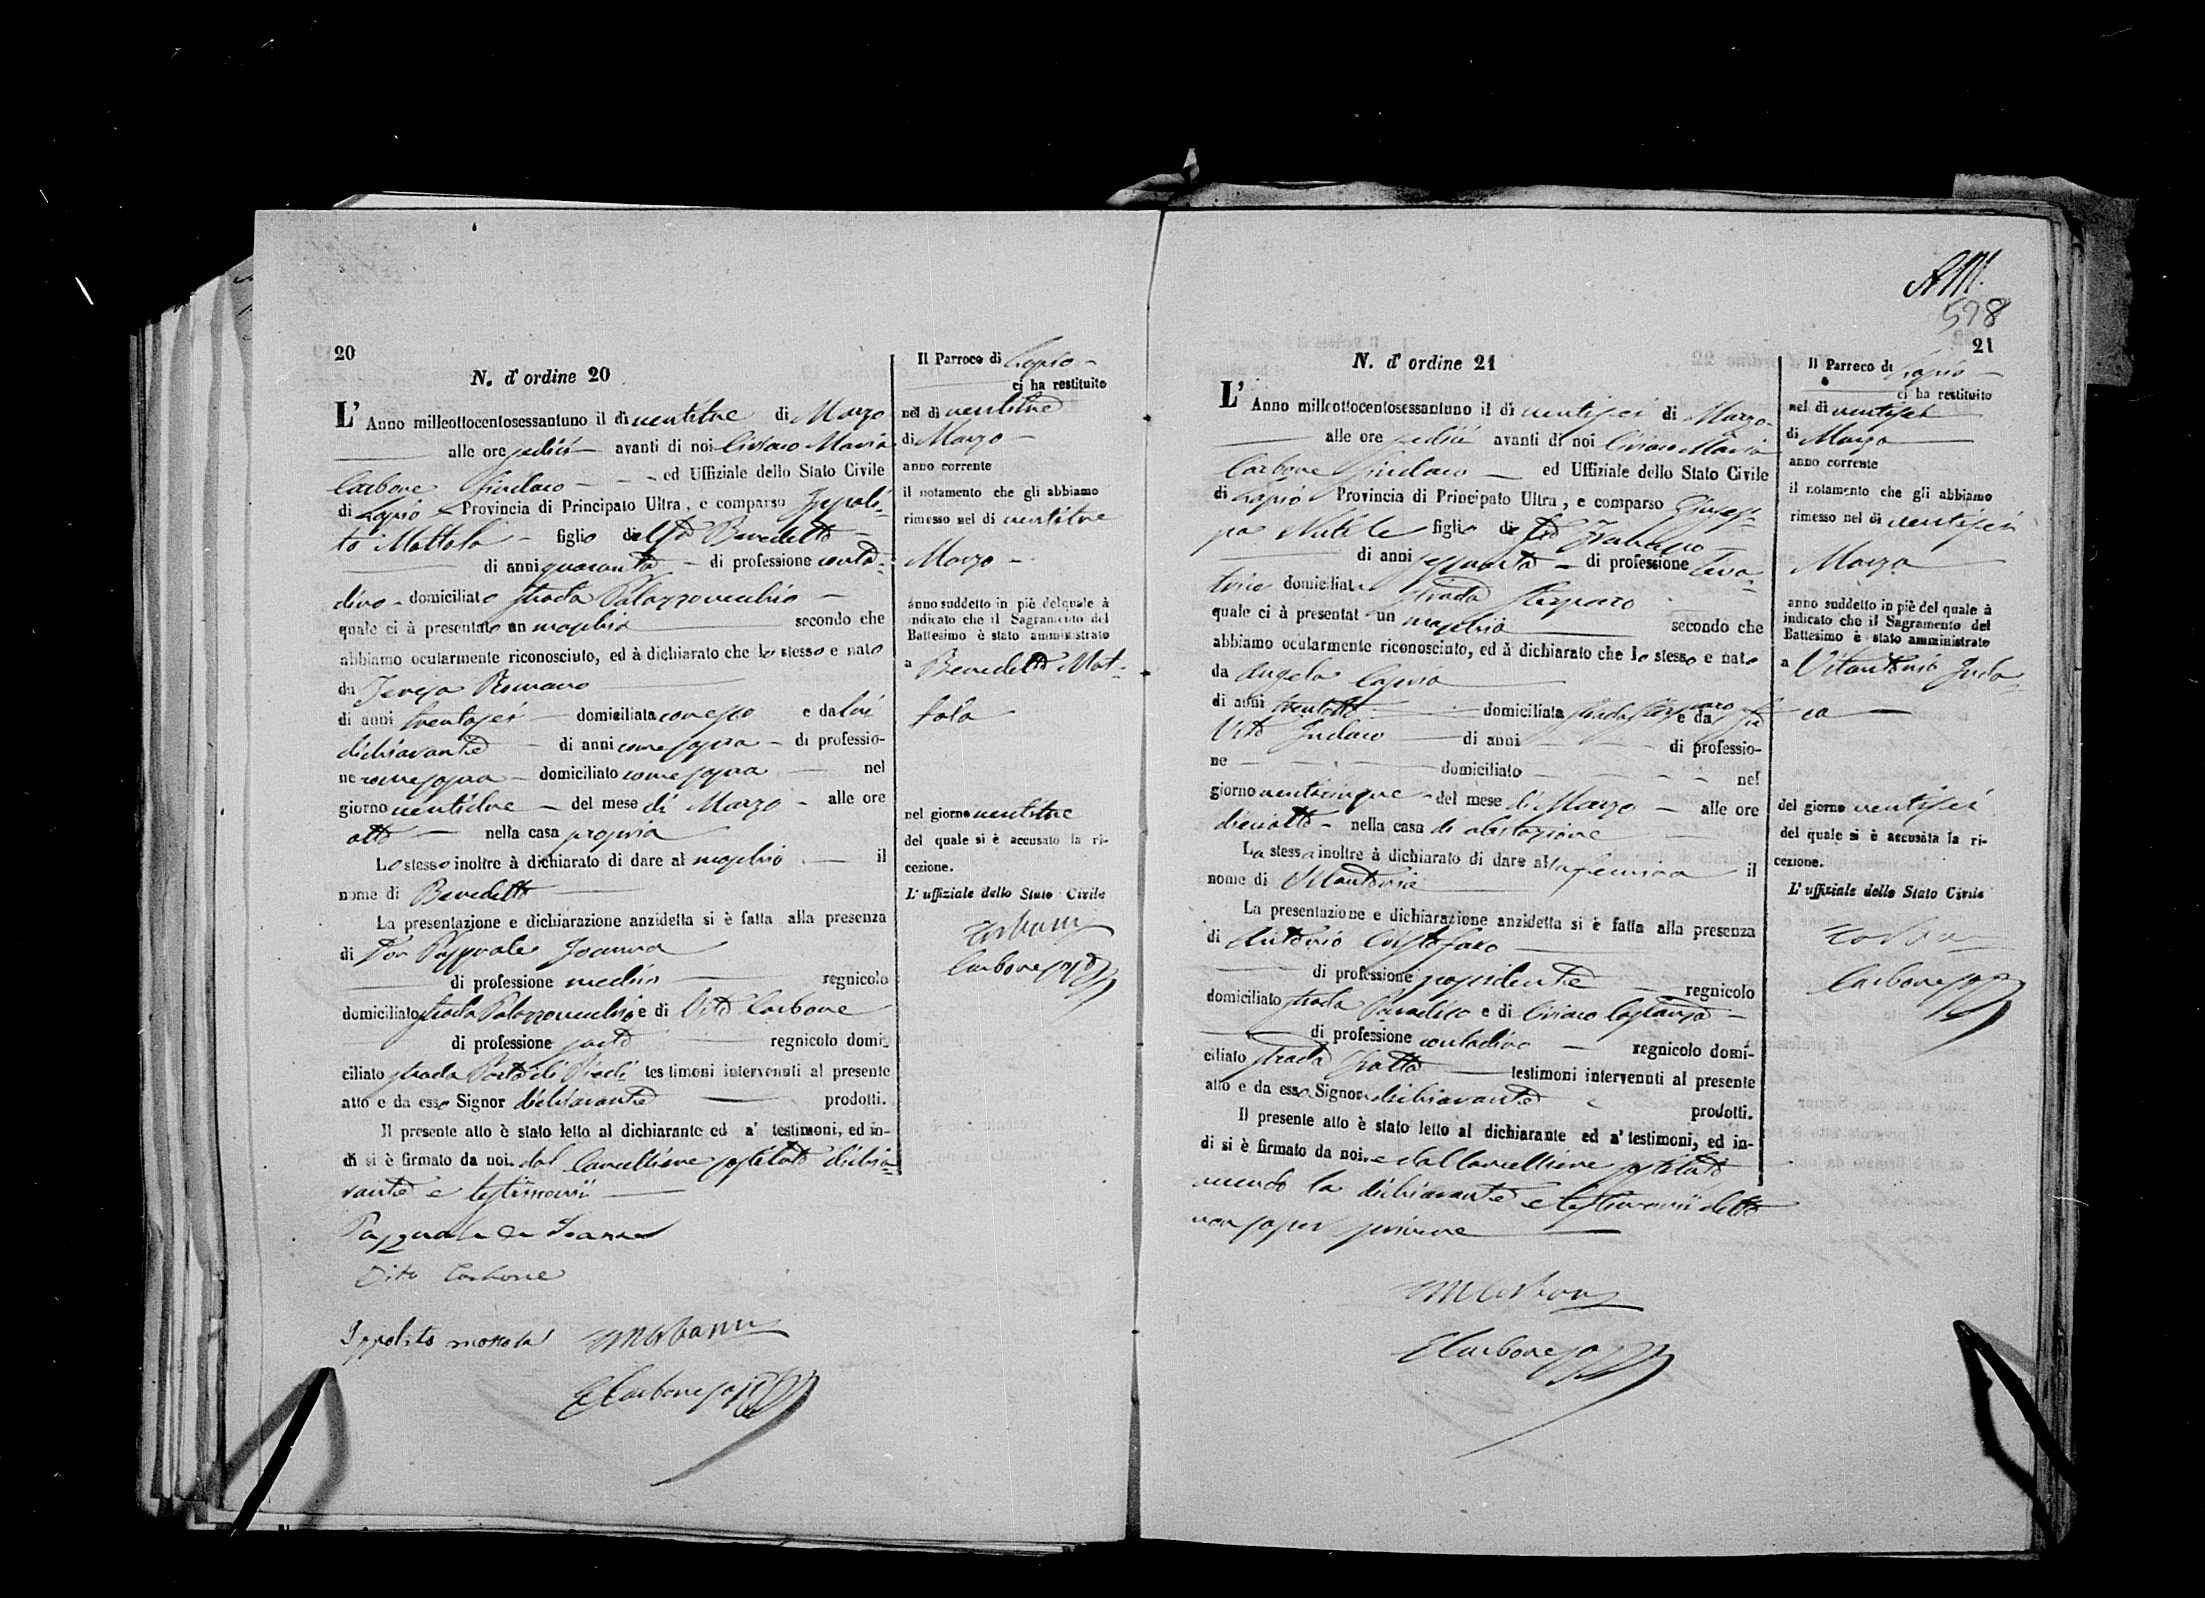 20
N. d'ordine 20
L'Anno milleottocentosessantuno il dì ventitre di Marzo
alle ore sedici avanti di noi Ciriaco Maria
Carbone Sindaco ed Uffiziale dello Stato Civile
di Lapio Provincia di Principato Ultra, e comparso Ippoli-
to Mottola figlio del fu Benedetto
di anni quaranta di professione conta-
dino domiciliato strada Palazzovecchio
quale ci à presentato un maschio secondo che
abbiamo ocularmente riconosciuto, ed à dichiarato che lo stesso e nato
da Teresa Romano
di anni trentasei domiciliata con esso e da lui
dichiarante di anni come sopra di professio-
ne come sopra domiciliato come sopra nel
giorno ventidue del mese di Marzo alle ore
otto nella casa propria
Lo stesso inoltre à dichiarato di dare al maschio il
nome di Benedetto
La presentazione e dichiarazione anzidetta si è fatta alla presenza
di Don Pasquale Joanna
di professione medico regnicolo
domiciliato strada Palazzovecchio e di Vito Carbone
di professione sarto regnicolo domi-
ciliato strada Porta di Piedi testimoni intervenuti al presente
atto e da esso Signor dichiarante prodotti.
Il presente atto è stato letto al dichiarante ed a' testimoni, ed in-
di si è firmato da noi, dal Cancelliere sostituto dichia-
rante e testimonii
Pasquale de Joanna
Vito Carbone
Ippolito Mottola
Carbone
Il Parroco di Lapio
ci ha restituito
nel dì ventitre
di Marzo
anno corrente
il notamento che gli abbiamo
rimesso nel dì ventitre
Marzo
anno suddetto in piè del quale à
indicato che il Sagramento del
Battesimo è stato amministrato
a Benedetto Mot-
tola
nel giorno ventitre
del quale si è accusato la ri-
cezione.
L'uffiziale dello Stato Civile
Carbone
578
21
N. d'ordine 21
L'Anno milleottocentosessantuno il dì ventisei di Marzo
alle ore sedici avanti di noi Ciriaco Maria
Carbone Sindaco ed Uffiziale dello Stato Civile
di Lapio Provincia di Principato Ultra, e comparso Giusep-
pa figlia del fu
di anni sessanta di professione leva-
trice domiciliata strada
quale ci à presentat un maschio secondo che
abbiamo ocularmente riconosciuto, ed à dichiarato che lo stesso e nato
da Angela Caprio
di anni trentotto domiciliata strada e da fu
Vito Judaco di anni di professio-
ne domiciliato nel
giorno venticinque del mese di Marzo alle ore
diciotto nella casa di abitazione
La stessa inoltre à dichiarato di dare alla femina il
nome di Vitantonia
La presentazione e dichiarazione anzidetta si è fatta alla presenza
di Antonio Cristofaro
di professione possidente regnicolo
domiciliato strada Paradiso e di Ciriaco
di professione contadino regnicolo domi-
ciliato strada testimoni intervenuti al presente
atto e da essa Signor dichiarante prodotti.
Il presente atto è stato letto al dichiarante ed a' testimoni, ed in-
di si è firmato da noi, e dal Cancelliere sostituto
avendo la dichiarante e testimonii detto
non saper scrivere
Carbone
Il Parroco di Lapio
ci ha restituito
nel dì ventisei
di Marzo
anno corrente
il notamento che gli abbiamo
rimesso nel dì ventisei
Marzo
anno suddetto in piè del quale à
indicato che il Sagramento del
Battesimo è stato amministrato
a Vitantonio Juda-
co
del giorno ventisei
del quale si è accusata la ri-
cezione.
L'uffiziale dello Stato Civile
Carbone